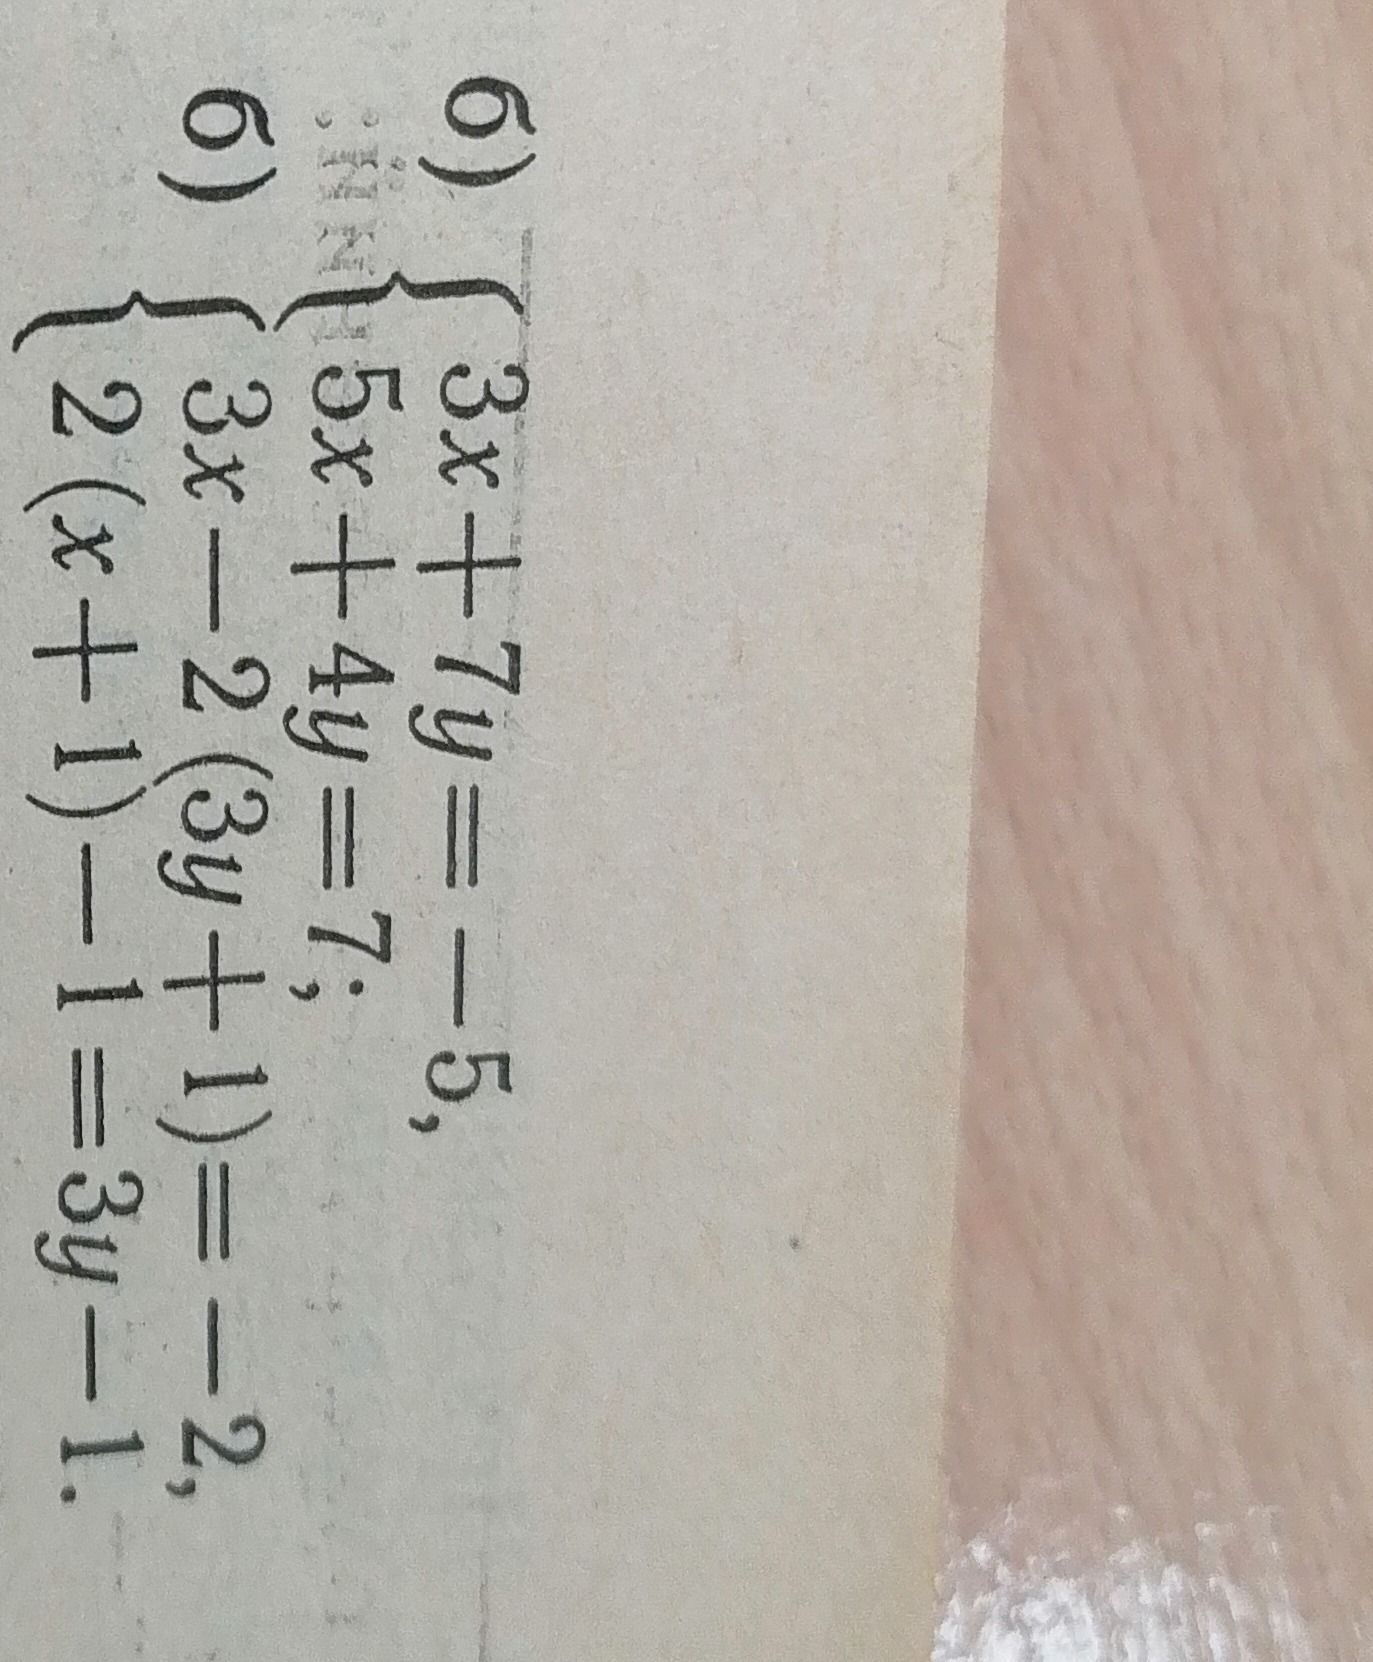 б) { 3x + 7y = - 5,
5x + 4y = 7;
б) { 3x - 2 (3y + 1) = - 2,
2 (x + 1) - 1 = 3y - 1.